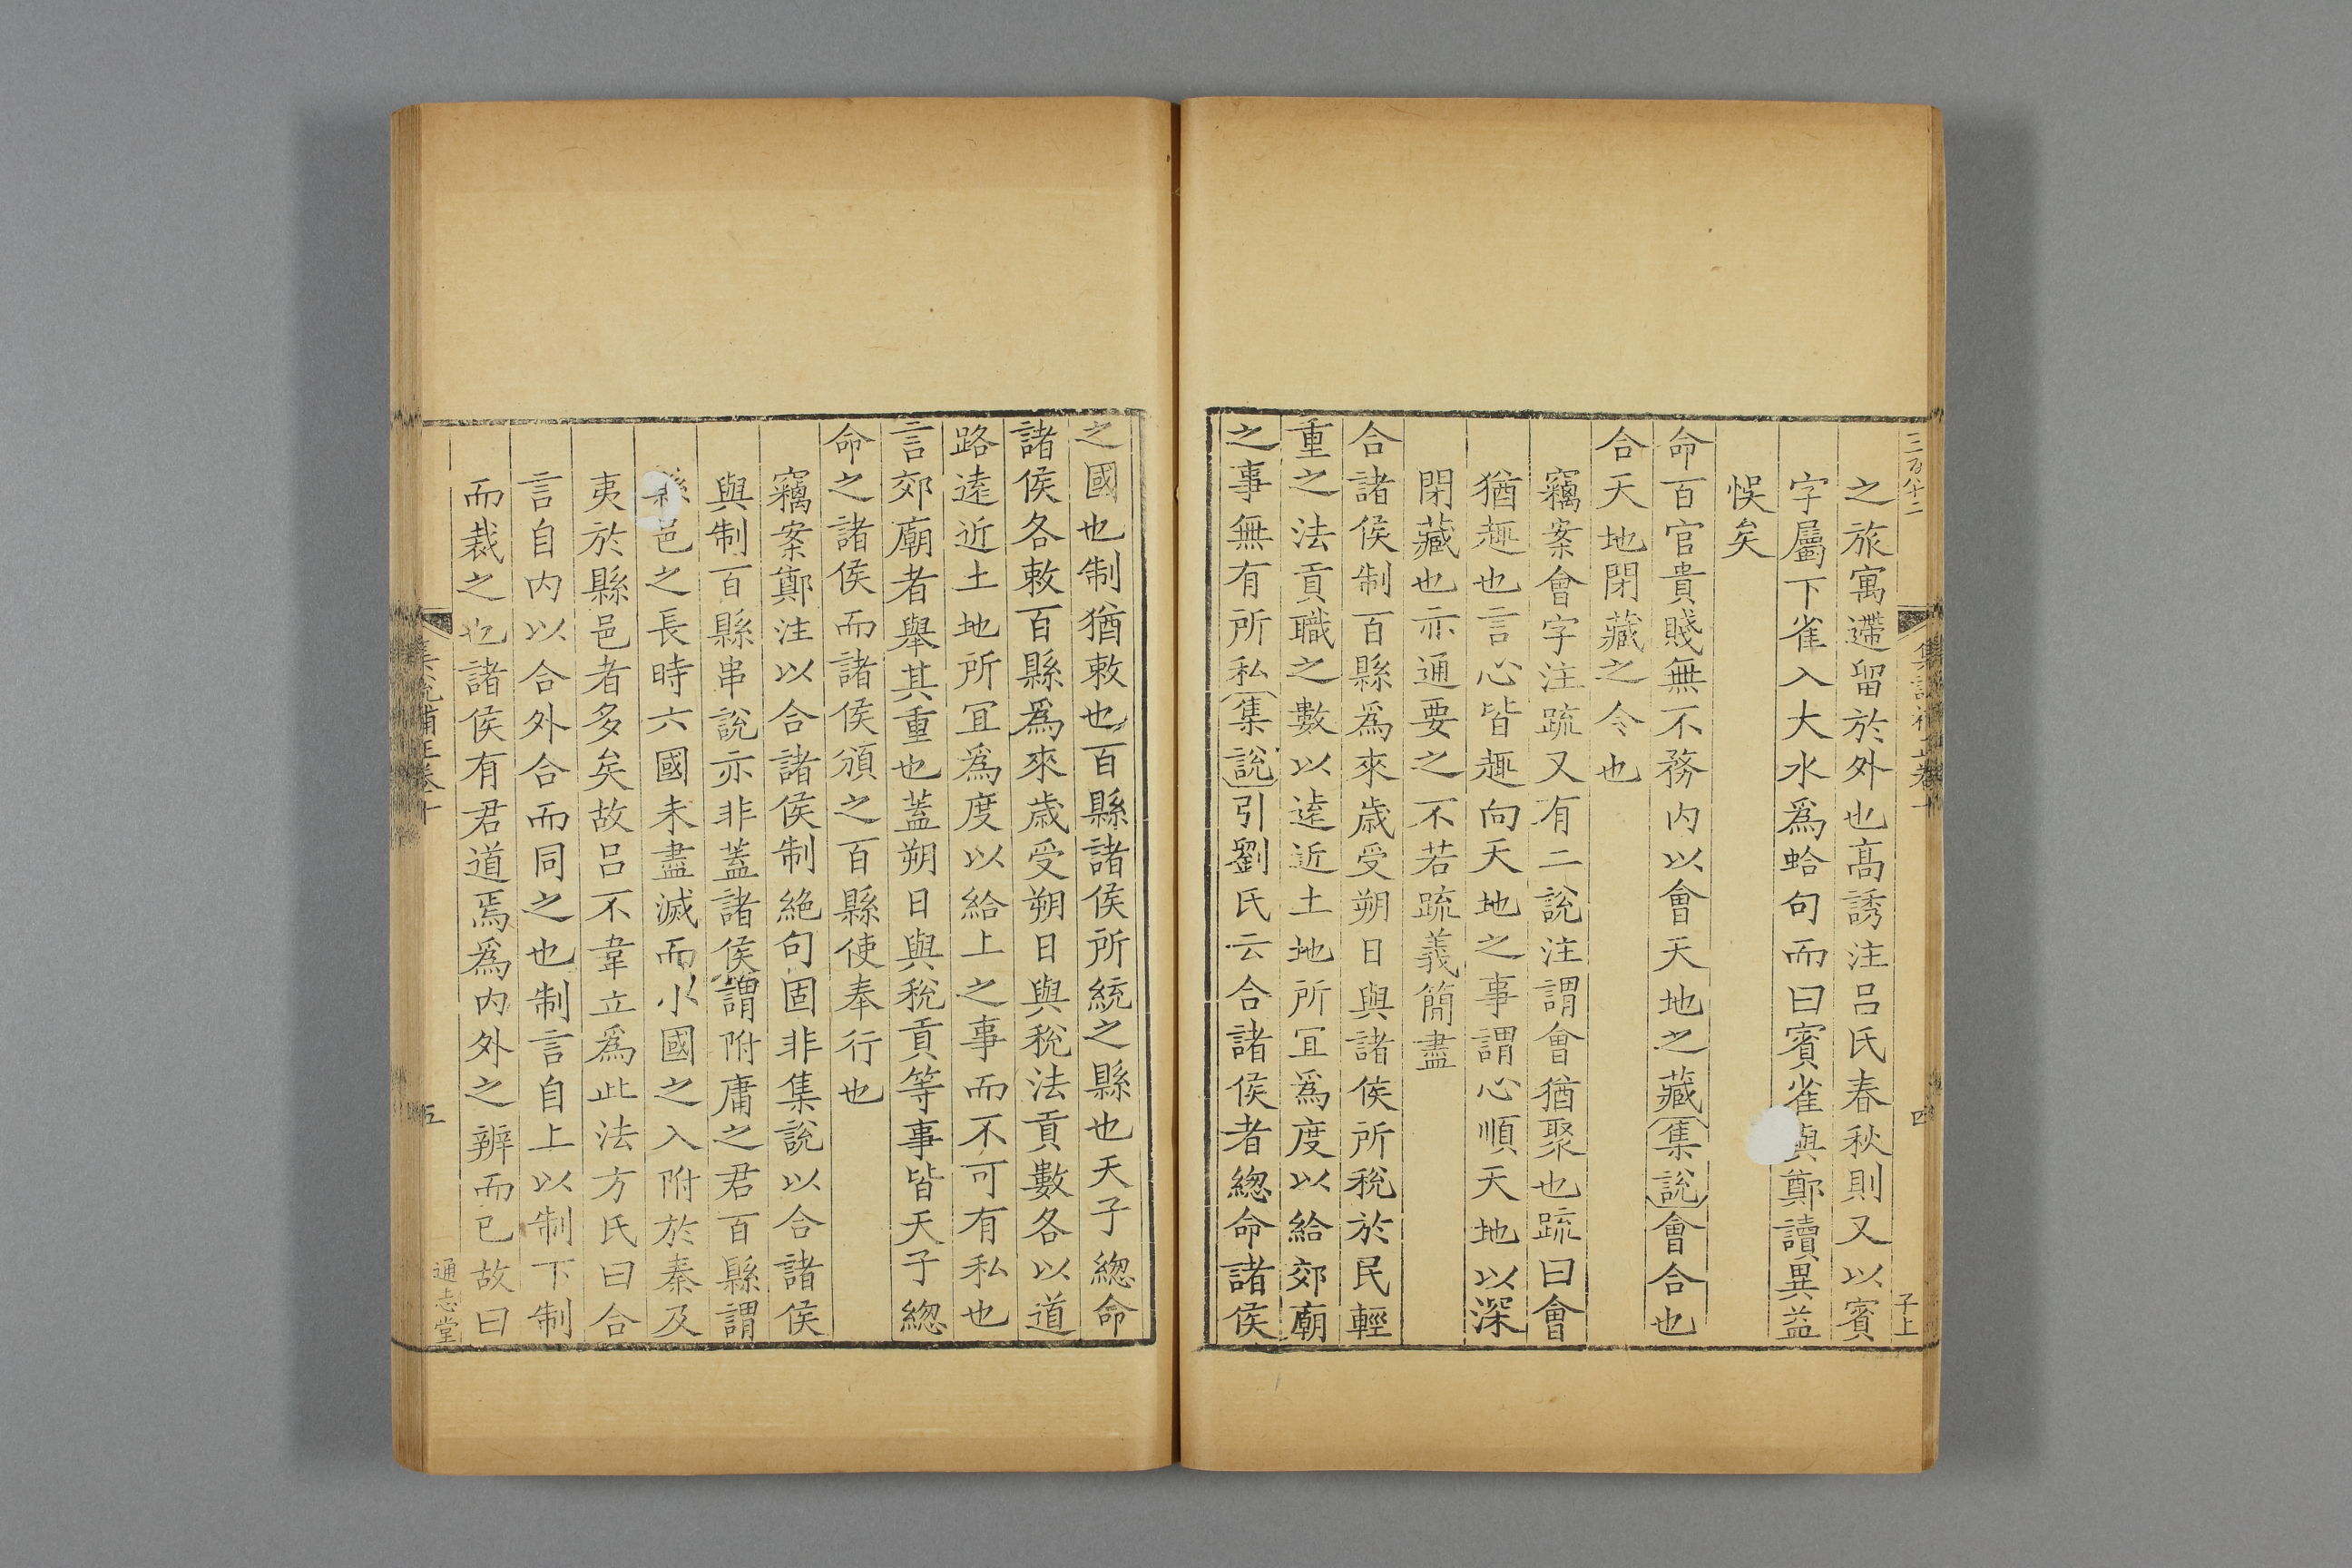 三百八十二
子上
之旅寓遰留於外也高誘注呂氏春秋則又以賓
字屬下雀入大水爲蛤句而曰賓雀與鄭讀異益
悞矣
命百官貴賤無不務内以會天地之藏集說會合也
合天地閉藏之令也
竊案會字注疏又有二說注謂會猶聚也疏曰會
猶趣也言心皆趣向天地之事謂心順天地以深
閉藏也亦通要之不若疏義簡盡
合諸侯制百縣爲來歲受朔日與諸侯所稅於民輕
重之法貢職之數以逺近土地所冝爲度以給郊廟
之事無有所私集說引劉氏云合諸侯者緫命諸侯
之國也制猶敕也百縣諸侯所統之縣也天子緫命
諸侯各敕百縣爲來歲受朔日與稅法貢數各以道
路逺近土地所冝爲度以給上之事而不可有私也
言郊廟者舉其重也蓋朔日與稅貢等事皆天子緫
命之諸侯而諸侯頒之百縣使奉行也
竊案鄭注以合諸侯制絶句固非集說以合諸侯
與制百縣串說亦非蓋諸侯謂附庸之君百縣謂
縣邑之長時六國未盡滅而小國之入附於秦及
夷於縣邑者多矣故呂不韋立爲此法方氏曰合
言自内以合外合而同之也制言自上以制下制
而裁之也諸侯有君道焉爲内外之辨而已故曰
集說補正卷十
五
通志堂